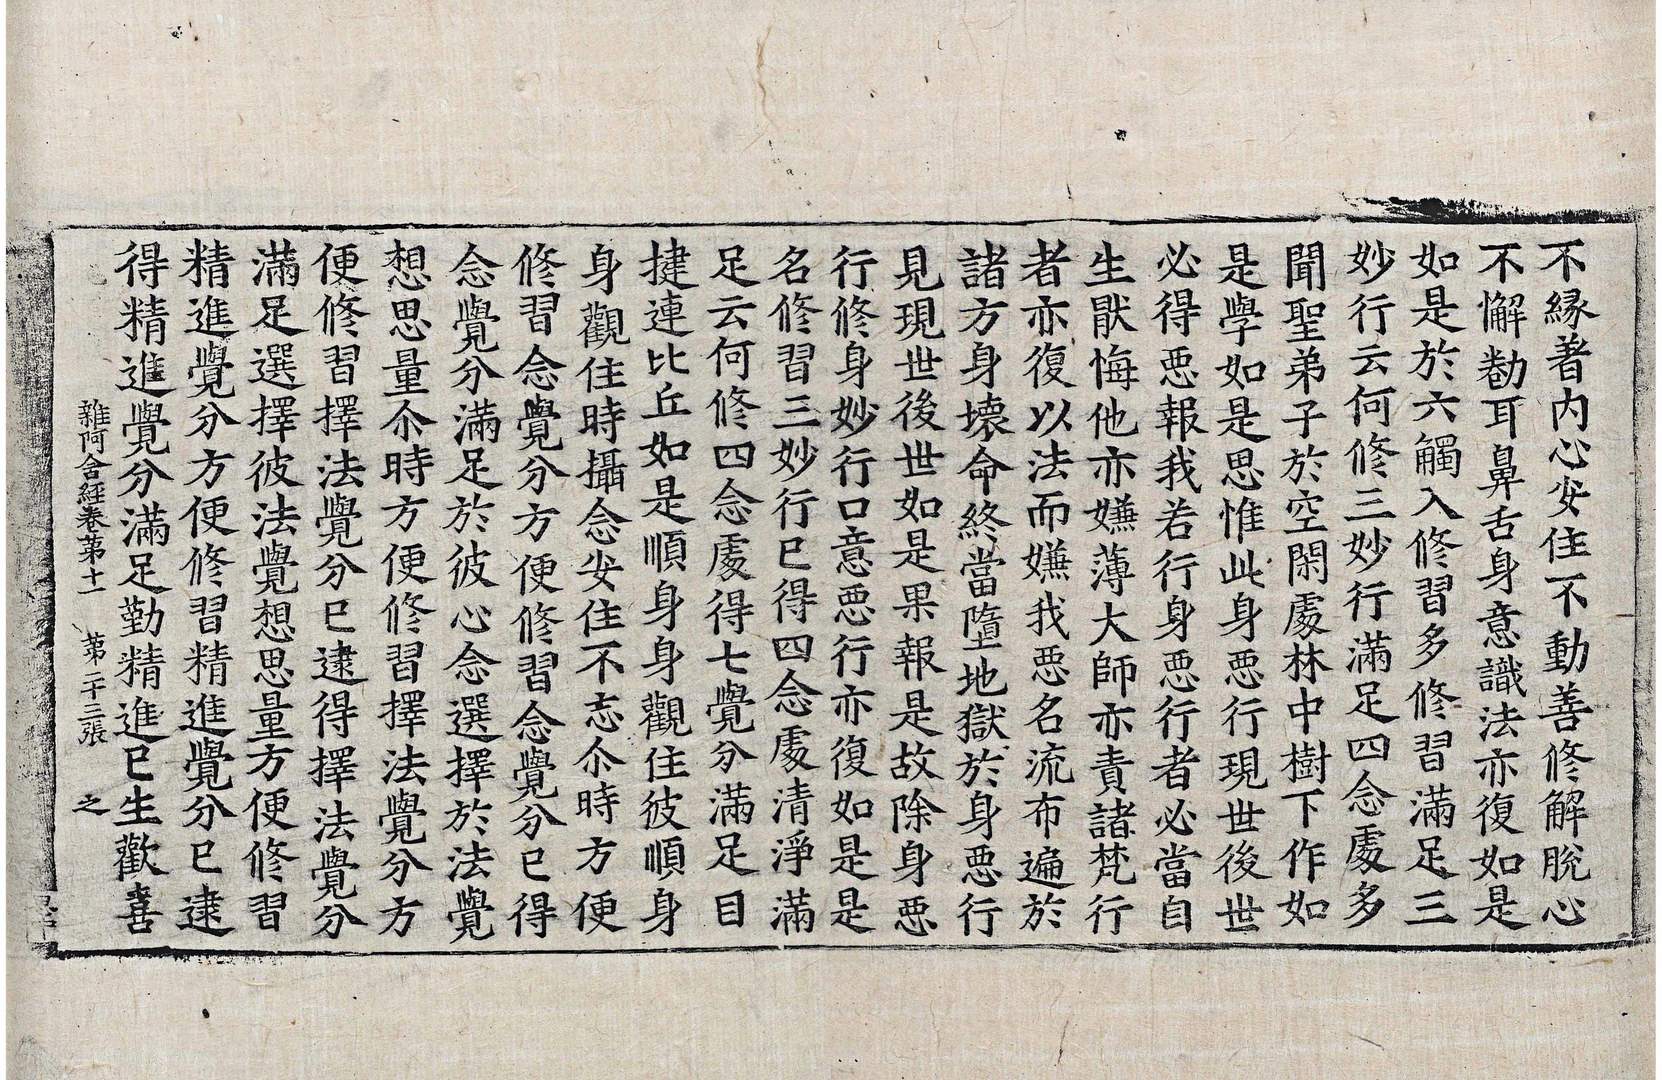 不縁著内心安住不動善修解脫心
不懈勌耳鼻舌身意識法亦復如是
如是於六觸入修習多修習滿足三
妙行云何修三妙行滿足四念處多
聞聖弟子於空閑處林中樹下作如
是學如是思惟此身惡行現世後世
必得惡報我若行身惡行者必當自
生猒悔他亦嫌薄大師亦責諸梵行
者亦復以法而嫌我惡名流布遍於
諸方身壞命終當墮地獄於身惡行
見現世後世如是果報是故除身惡
行修身妙行口意惡行亦復如是是
名修習三妙行已得四念處清淨滿
足云何修四念處得七覺分滿足目
揵連比丘如是順身身觀住彼順身
身觀住時攝念安住不忘尒時方便
修習念覺分方便修習念覺分已得
念覺分滿足於彼心念選擇於法覺
想思量尒時方便修習擇法覺分方
便修習擇法覺分已逮得擇法覺分
滿足選擇彼法覺想思量方便修習
精進覺分方便修習精進覺分已逮
得精進覺分滿足勤精進已生歡喜
雜阿含経卷第十一 第二十三張 之